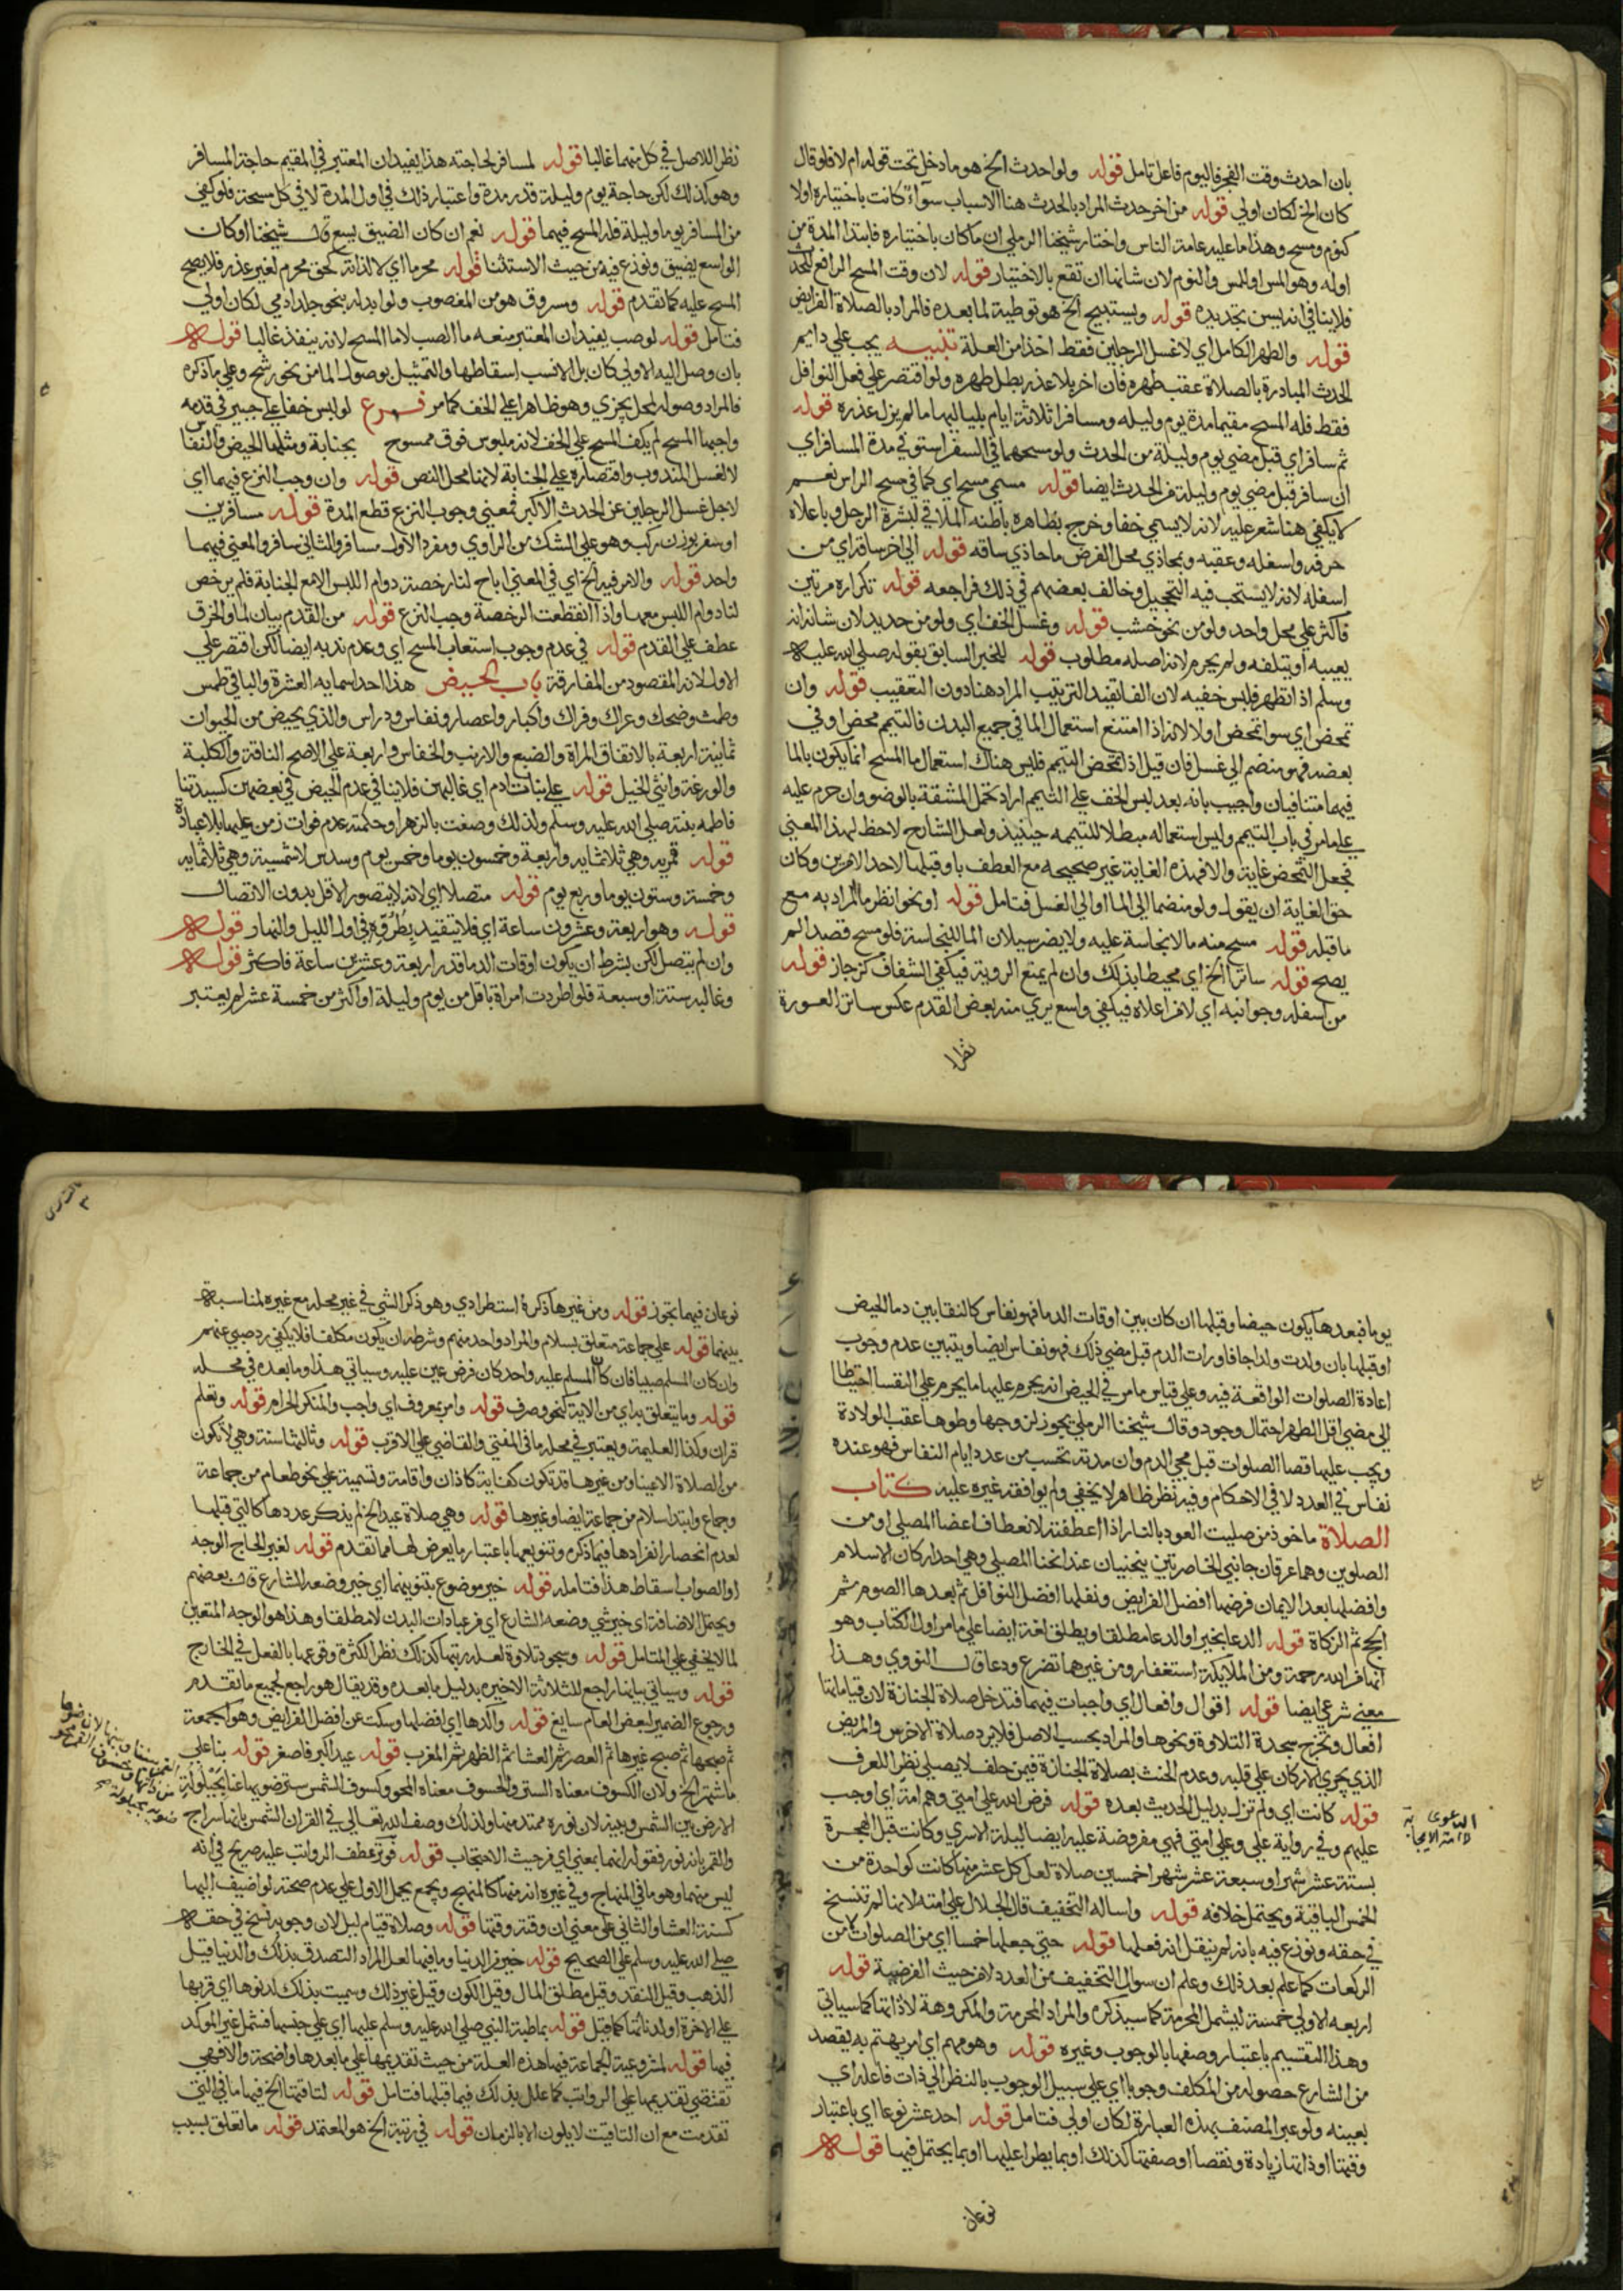 بان احدث وقت الفجر فاليوم فاعل تامل قوله ولو احدث الخ هو ما دخل تحت قوله ام لا فلو قال
كان الخ لكان اولي قوله من اخر حدث المراد بالحدث هنا الاسباب سوآء كانت باختياره اولا
كنوم ومسح وهذا ما عليه عامة الناس واختار شيخنا الرملي ان ما كان باختياره فابتدا المدة من
اوله وهو المس او اللمس والنوم لان شانها ان تقع بالاختيار قوله لان وقت المسح الرافع للحدث
فلا ينافي انه يسن تجديده قوله ويستبيح الخ هو توطية لما بعده فالمراد بالصلاة الفرايض
قوله والطهر الكامل اي لا غسل الرجلين فقط اخذا من العلة تنبيه يجب علي دايم
الحدث المبادرة بالصلاة عقب طهره فان اخر بلا عذر بطل طهره ولو اقتصر علي فعل النوافل
فقط فله المسح مقيما مدة يوم وليله ومسافرا ثلاثة ايام بلياليها ما لم يزل عذره قوله
ثم سافر اي قبل مضي يوم وليلة من الحدث ولو مسحهما في السفر استوفي مدة المسافر اي
ان سافر قبل مضي يوم وليلة من الحدث ايضا قوله مسمي مسح اي كما في مسح الراس نعم
لا يكفي هنا شعر عليه لانه لا يسمي خفا وخرج بظاهره باطنه الملاقي لبشرة الرجل وباعلاه
حرفه واسفله وعقبه وبمحاذي محل الفرض ما حاذي ساقه قوله الي اخر ساقه اي من
اسفله لانه لا يستحب فيه التحجيل وخالف بعضهم في ذلك فراجعه قوله تكراره مرتين
فاكثر علي محل واحد ولو من نحو خشب قوله وغسل الخف اي ولو من حديد لان شانه انه
يعيبه او يتلفه ولم يحرم لانه اصله مطلوب قوله للخبر السابق بقوله صلي الله عليه
وسلم اذا تطهر فلبس خفيه لان الفا تفيد الترتيب المراد هنا دون التعقيب قوله وان
تمحض اي سوا تمحض اولا لانه اذا امتنع استعمال الما في جميع البدن فالتيمم محض او في
بعضه فهو منضم الي غسل فان قيل اذا تمحض التيمم فليس هناك استعمال ما المسح انما يكون بالما
فيهما متنافيان واجيب بانه بعد لبس الخف علي التيمم اراد تحمل المشقة بالوضو وان حرم عليه
علي ما مر في باب التيمم وليس استعماله مبطلا للتيممه حينيذ ولعل الشارح لاحظ لهذا المعني
فجعل التمحض غاية والا فهذه الغاية غير صحيحه مع العطف باو قبلها لاحد الامرين وكان
حق الغاية ان يقول ولو منضما الي الما او الي الغسل فتامل قوله او نحو انظر ما المراد به مع
ما قبله قوله مسح منه ما لا نجاسة عليه ولا يضر سيلان الما للنجاسة فلو مسح قصدا لم
يصح قوله ساتر الخ اي محيطا بذلك وان لم يمنع الروية فيكفي الشفاف كزجاج قوله
من اسفله وجوانبه اي لا من اعلاه فيكفي واسع يري منه بعض القدم عكس ساتر العورة
نظرا
نظرا للاصل في كل منهما غالبا قوله لمسافر لحاجته هذا يفيد ان المعتبر في المقيم حاجة المسافر
وهو كذلك لكن حاجة يوم وليلة قدر مدة واعتبار ذلك في اول المدة لا في كل مسحة فلو كفي
من المسافر يوما وليلة فله المسح فيهما قوله نعم ان كان الضيق يتسع قال شيخنا او كان
الواسع يضيق ونوزع فيه من حيث الاستثنا قوله محرما اي لا لذاته كحق محرم لغير عذر فلا يصح
المسح عليه كما تقدم قوله ومسروق هو من المغصوب ولو ابدله بنحو جلد ادمي لكان اولي
فتامل قوله لو صب يفيد ان المعتبر منعه ما الصب لا ما المسح لانه ينفذ غالبا قوله
بان وصل اليه الاولي كان بل الانسب اسقاطها والتمثيل بوصول الما من نحو رشح وعلي ما ذكره
فالمراد وصوله لمحل يجزي وهو ظاهر اعلي الخف كما مر فرع لو لبس خفا علي جبيرة في قدمه
واجبها المسح لم يكف المسح علي الخف لانه ملبوس فوق ممسوح بجنابة ومثلها الحيض والنفاس
لا لغسل المندوب واقتصاره علي الجنابة لانها محل النص قوله وان وجب النزع فيهما اي
لاجل غسل الرجلين عن الحدث الاكبر فمعني وجوب النزع قطع المدة قوله مسافرين
او سفر بوزن ركب وهو علي الشك من الراوي ومفرد الاول مسافر والثاني سافر والمعني فيهما
واحد قوله والامر فيه الخ اي في المعني اباح لنا رخصة دوام اللبس الا مع الجنابة فلم يرخص
لنا دوام اللبس معها واذا انقطعت الرخصة وجب النزع قوله من القدم بيان لما والخرق
عطف علي القدم قوله في عدم وجوب استيعاب المسح اي وعدم ندبه ايضا لكن اقتصر علي
الاول لانه المقصود من المفارقة باب الحيض هذا احد اسمايه العشرة والباقي طمس
وطمث وضحك وعراك وفراك واكبار واعصار ونفاس ودراس والذي يحيض من الحيوان
ثمانية اربعة بالاتفاق المراة والضبع والارنب والخفاش واربعة علي الاصح الناقة والكلبة
والوزغة وانثي الخيل قوله علي بنات ادم اي غالبهن فلا ينافي عدم الحيض في بعضهن كسيدتنا
فاطمه بنته صلي الله عليه وسلم ولذلك وصفت بالزهرا وحكمته عدم فوات زمن عليها بلا عبادة
قوله قمريه وهي ثلاثمايه واربعة وخمسون يوما وخمس يوم وسدس لا شمسية وهي ثلاثمايه
وخمسة وستون يوما وربع يوم قوله متصلا اي لانه لا يتصور الاقل بدون الاتصال
قوله وهو اربعة وعشرون ساعة اي فلا يتقيد بطروه في اول الليل والنهار قوله
وان لم يتصل لكن بشرط ان يكون اوقات الدما قدر اربعة وعشرين ساعة فاكثر قوله
وغالبه ستة او سبعة فلو اطردت امراة باقل من يوم وليلة او اكثر من خمسة عشر لم يعتبر
يوما فبعدها يكون حيضا وقبلها ان كان بين اوقات الدما فهو نفاس كالنقا بين دما الحيض
او قبلها بان ولدت ولدا جافا ورات الدم قبل مضي ذلك فهو نفاس ايضا ويتبين عدم وجوب
اعادة الصلوات الواقعة فيه وعلي قياس ما مر في الحيض انه يحرم عليها ما يحرم علي النفسا احتياطا
الي مضي اقل الطهر احتمال وجود وقال شيخنا الرملي يجوز لزوجها وطوها عقب الولادة
ويجب عليها قضا الصلوات قبل مجي الدم وان مدته تحسب من عدد ايام النفاس فهو عنده
نفاس في العدد لا في الاحكام وفيه نظر ظاهر لا يخفي ولم يوافقه غيره عليه كتاب
الصلاة ماخوذ من صليت العود بالنار اذا اعطفته لانعطاف اعضا المصلي او من
الصلوين وهما عرقان جانبي الخاصرتين ينحنيان عند انحنا المصلي وهي احد اركان الاسلام
وافضلها بعد الايمان فرضها افضل الفرايض ونفلها افضل النوافل ثم بعدها الصوم ثم
الحج ثم الزكاة قوله الدعا بخير او الدعا مطلقا ويطلق لغة ايضا علي ما مر اول الكتاب وهو
انها من الله رحمة ومن الملايكة استغفار ومن غيرها تضرع ودعا قال النووي وهذا
معني شرعي ايضا قوله اقوال وافعال اي واجبات فيهما فتدخل صلاة الجنازة لان قياماتها
افعال وتخرج سجدة التلاوة ونحوها والمراد بحسب الاصل فلا يرد صلاة الاخرس والمريض
الذي يجري الاركان علي قلبه وعدم الحنث بصلاة الجنازة فيمن حلف لا يصلي نظرا للعرف
قوله كانت اي ولم تزل بدليل الحديث بعده قوله فرض الله علي امتي وهم امة اي اوجب
عليهم وفي رواية علي وعلي امتي فهي مفروضة عليه ايضا ليلة الاسري وكانت قبل الهجرة
بستة عشر شهرا او سبعة عشر شهرا خمسين صلاة لعل كل عشر منها كانت كواحدة من
الخمس الباقية ويحتمل خلافه قوله واساله التخفيف قال الجلال علي امته لانها لم تنسخ
في حقه ونوزع فيه بانه لم ينقل انه فعلها قوله حتي جعلها خمسا اي من الصلوات لا من
الركعات كما علم بعد ذلك وعلم ان سوال التخفيف من العدد لا من حيث الفرضية قوله
اربعه الاولي خمسة ليشمل المحرمة كما سيذكره والمراد المحرمة والمكروهة لا لذاتها كما سياتي
وهذا التقسيم باعتبار وصفها بالوجوب وغيره قوله وهو مهم اي امر يهتم به يقصد
من الشارع حصوله من المكلف وجوبا اي علي سبيل الوجوب بالنظر الي ذات فاعله اي
بعينه ولو عبر المصنف بهذه العبارة لكان اولي فتامل قوله احد عشر نوعا اي باعتبار
وقتها او ذاتها زيادة ونقصا او صفتها كذلك او بما يطرا عليها او بما يحتمل فيها قوله
نوعان
الدعوي
لا امة الاجابة
نوعان فيهما تجوز قوله ومن غيرها ذكره استطرادي وهو ذكر الشي في غير محله مع غيره لمناسبة
بينهما قوله علي جماعة متعلق بسلام والمراد واحد منهم وشرطه ان يكون مكلفا فلا يكفي رد صبي عنهم
وان كان المسلم صبيا فان كان المسلم عليه واحد كان فرض عين عليه وسياتي هذا وما بعده في محله
قوله وما يتعلق بها اي من الالية كنحو وصرف قوله وامر بمعروف اي واجب والمنكر الحرام قوله وتعلم
قران وكذا العليمة ويعتبر في محله ما في المفتي والقاضي علي الاقرب قوله وثالثها سنة وهي لا تكون
من الصلاة الا عينا ومن غيرها قد تكون كفاية كاذان واقامة وتسمية علي نحو طعام من جماعة
وجماع وابتدا سلام من جماعة ايضا وغيرها قوله وهي صلاة عيد الخ لم يذكر عددها كالتي قبلها
لعدم انحصار انفرادها فيما ذكره وتنويعها باعتبار ما يعرض لها مما تقدم قوله لغير الحاج الوجه
او الصواب اسقاط هذا فتامله قوله خير موضوع بتنوينهما اي خير وضعه الشارع قال بعضهم
ويحتمل الاضافة اي خير شي وضعه الشارع اي من عبادات البدن لا مطلقا وهذا هو الوجه المتعين
لما لا يخفي علي المتامل قوله وسجود تلاوة لعله رتبها كذلك نظرا لكثرة وقوعها بالفعل في الخارج
قوله وسياتي بيانها راجع للثلاثة الاخيره بدليل ما بعده وقد يقال هو راجع لجميع ما تقدم
ورجوع الضمير لبعض العام سايغ قوله واكدها اي افضلها وسكت عن افضل الفرايض وهو الجمعة
ثم صبحها ثم صبح غيرها ثم العصر ثم العشا ثم الظهر ثم المغرب قوله عيد اكبر فاصغر قوله بناعلي
ما اشتهر الخ ولان الكسوف معناه الستر والخسوف معناه المحو وكسوف الشمس ستر ضويها عنا بحيلولة
الارض بين الشمس وبينه لان نوره ممتد منها ولذلك وصف الله تعالي في القران الشمس بانها سراج
والقمر بانه نور فقوله انهما بمعني اي من حيث الاحتجاب قوله فوتر عطف الرواتب عليه صريح في انه
ليس منهما وهو ما في المنهاج وفي غيره انه منها كالمنهج ويجمع بحمل الاول علي عدم صحته لو اضيف اليها
كسنة العشا والثاني علي معني ان وقته وقتها قوله وصلاة قيام ليل لان وجوبه نسخ في حقه
صلي الله عليه وسلم علي الصحيح قوله خير من الدنيا وما فيها لعل المراد التصدق بذلك والدنيا قبل
الذهب وقيل للنقد وقيل مطلق المال وقيل الكون وقيل غير ذلك وسميت بذلك لدنوها اي قربها
علي الاخرة او لدناتها كما قيل قوله بماطبة النبي صلي الله عليه وسلم عليها اي علي جنسها فشمل غير الموكد
فيها قوله لمشروعية الجماعة فيها هذه العلة من حيث تقديمها علي ما بعدها واضحة والا فهي
تقتضي تقديمها علي الرواتب كما علل بذلك فيما قبلها فتامل قوله لتاقيتها الخ فيها ما في التي
تقدمت مع ان التاقيت لا يكون الا بالزمان قوله في رتبة الخ هو المعتمد قوله ما تعلق بسبب